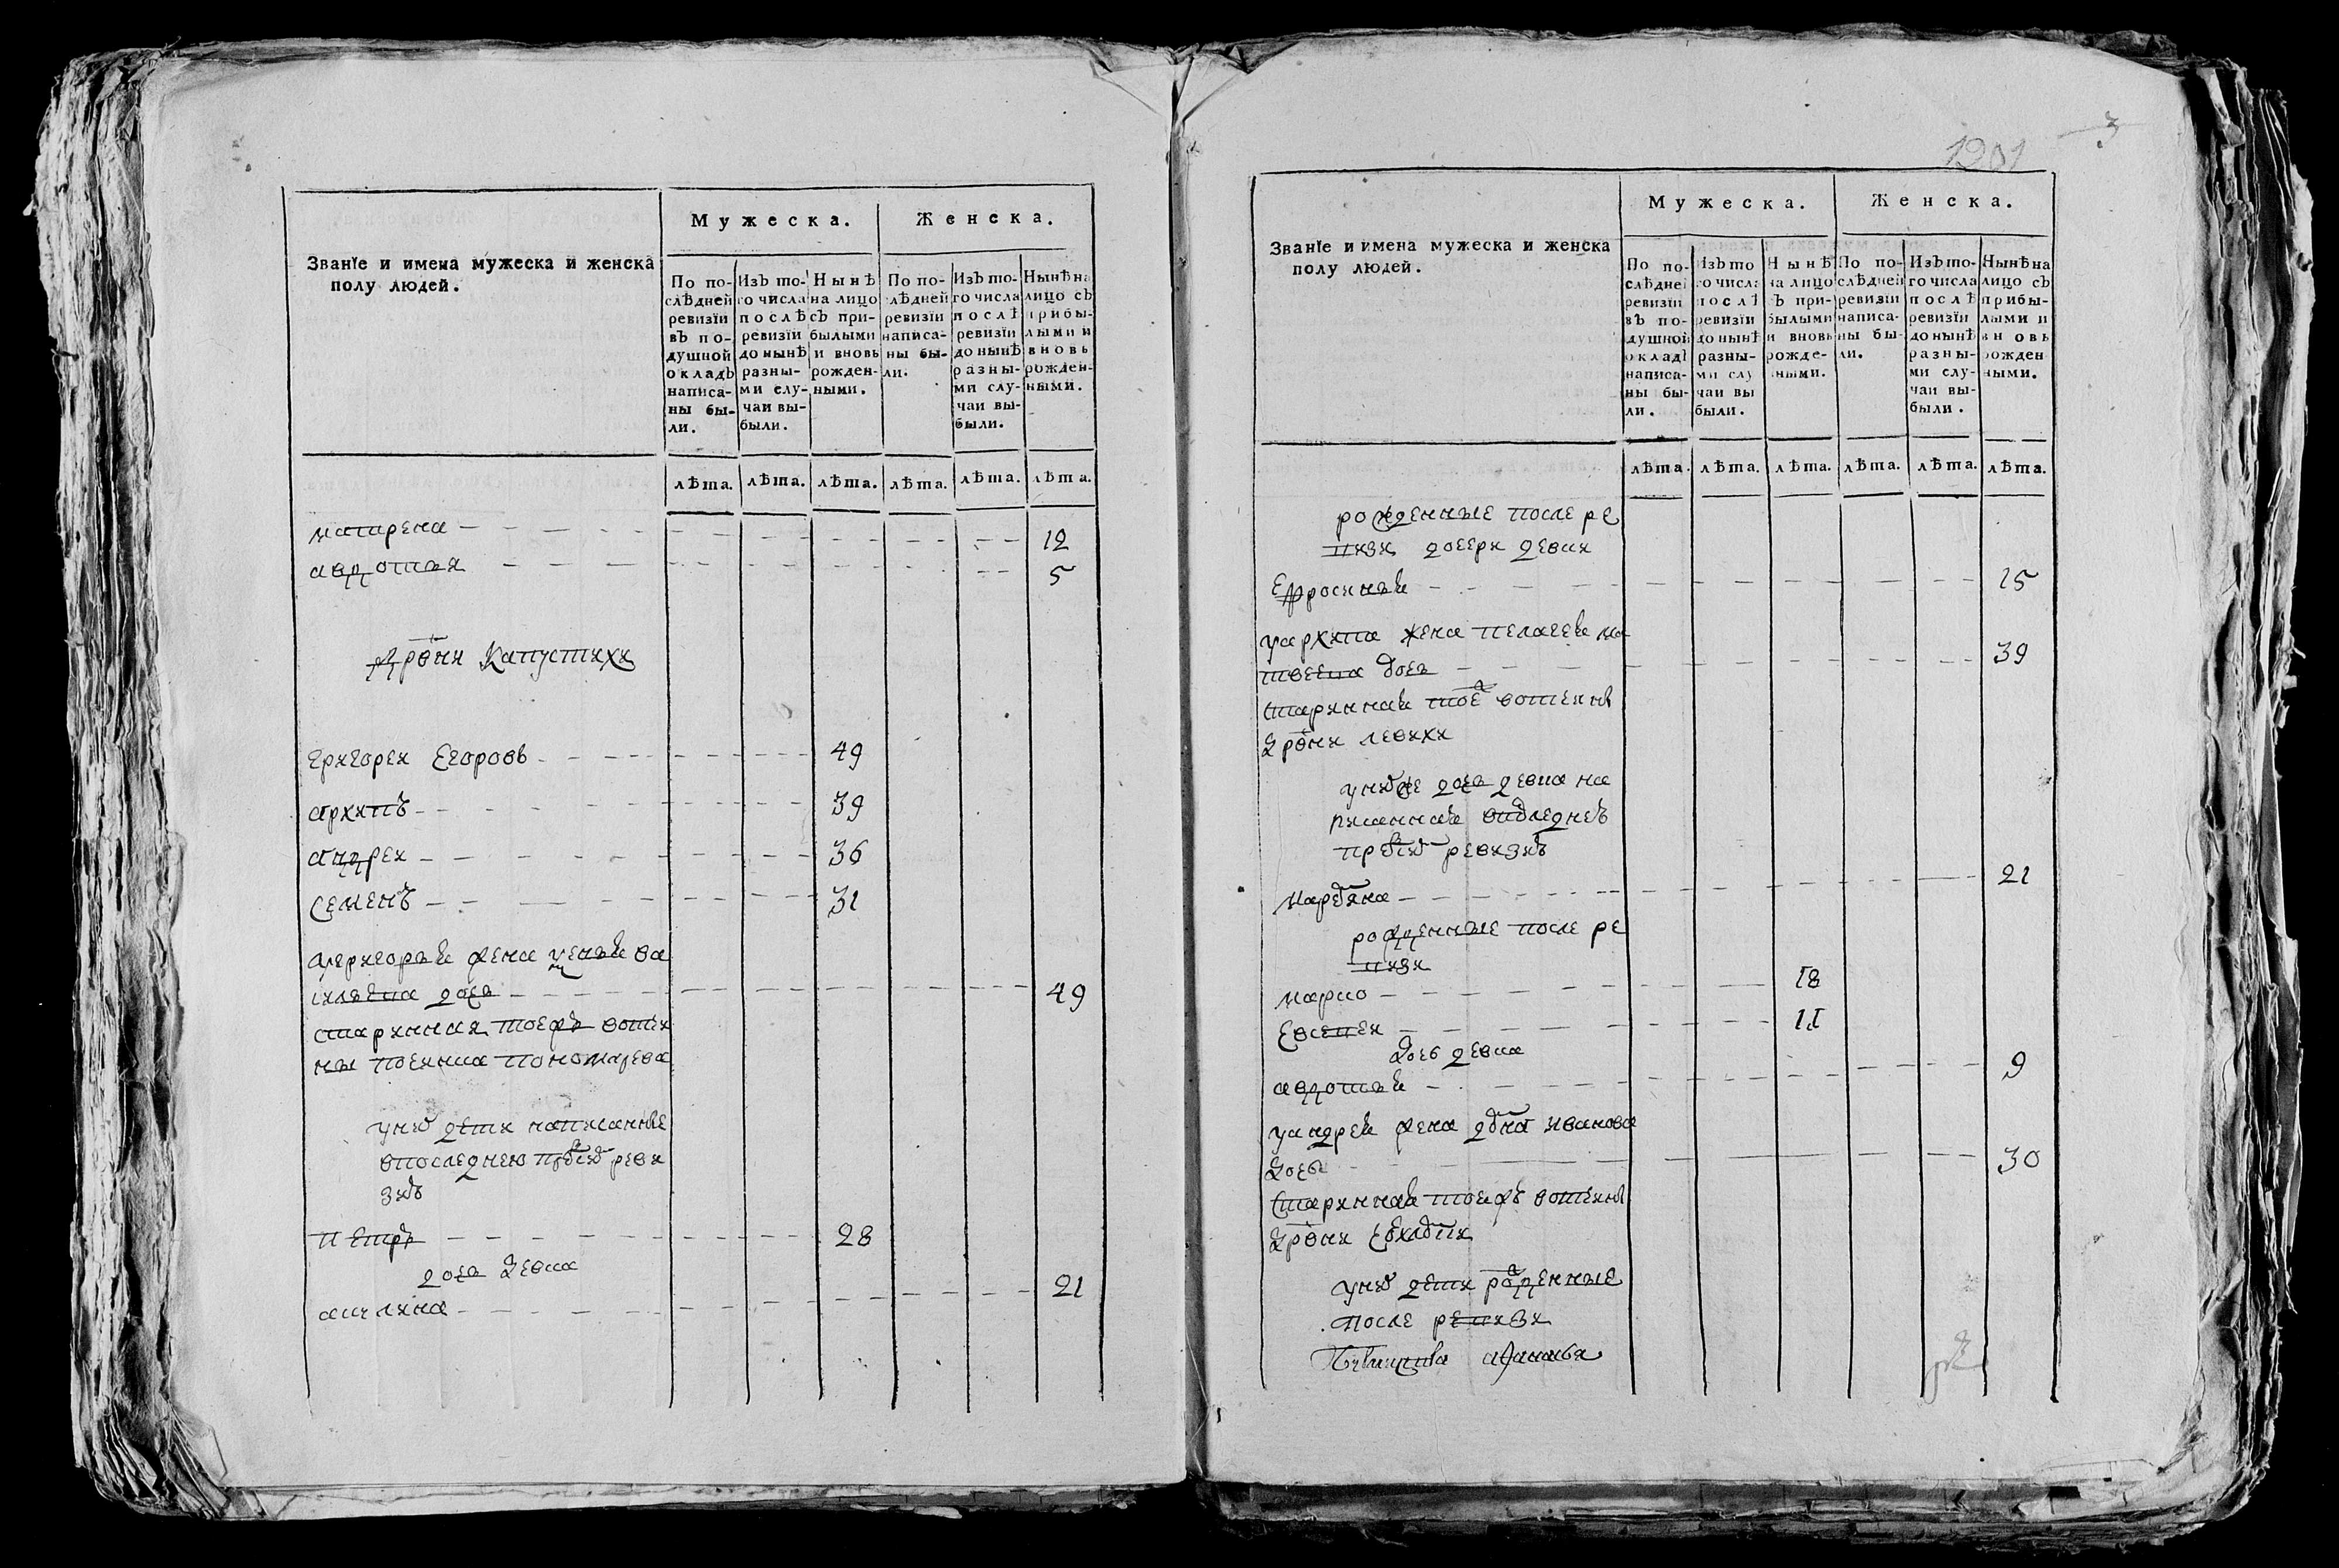 Званїе и имена мужеска и женска
полу людей.
Мужеска.
Женска.
По по-
слѣдней
ревизїи
въ по-
душной
окладъ
написа-
ны бы-
ли.
Изъ то-
го числа
послѣ
ревизїи
до нынѣ
разны-
ми слу-
чаи вы-
были.
Нынѣ
на лицо
съ при-
былыми
и вновь
рожден-
ными.
По по-
слѣдней
ревизїи
написа-
ны бы-
ли.
Изъ то-
го числа
послѣ
ревизїи
до нынѣ
разны-
ми слу-
чаи вы-
были.
Нынѣ на
лицо съ
прибы-
лыми и
вновь
рожден-
ными.
лѣта. лѣта. лѣта. лѣта. лѣта. лѣта.
матрена 12
авдотья 5
Дрвни Капустихи
григореи Егоровъ 49
архипъ 39
андреи 36
семенъ 31
угригорья жена
дочь 49
старинная тоежъ вотчи
ны поемка пономарева
унихъ дети написанные
впоследнею пред сим реви
зию
петръ 28
дочь девка
акулина 21
1201
3
Званїе и имена мужеска и женска
полу людей.
Мужеска.
Женска.
По по-
слѣдней
ревизїи
въ по-
душной
окладѣ
написа-
ны бы-
ли.
Изъ то
го числа
послѣ
ревизїи
до нынѣ
разны-
ми слу
чаи вы
были.
Нынѣ
на лицо
съ при-
былыми
и вновь
рожде-
нными.
По по-
слѣдней
ревизїи
написа-
ны бы-
ли.
Изъ то-
го числа
послѣ
ревизїи
до нынѣ
разны-
ми слу-
чаи вы-
были.
Нынѣ на
лицо съ
прибы-
лыми и
вновь
рожден
ными.
лѣта. лѣта. лѣта. лѣта. лѣта. лѣта.
рожденные после ре
визи дочери девки
Ефросинья 15
уархипа жена пелагея ма
твеева дочь 39
старинная тоеж вотчины
дрвни левихи
унихже дочь девка на
писанная впоследнею
пред сию ревизию
марьяна 21
рожденные после ре
визи
марко 18
Евсеви 11
дочь девка
авдотья 9
уандрея жена анна иванова
дочь 30
старинная тоежъ вотчины
дрвни
унихъ дети рожденные
после ревизи